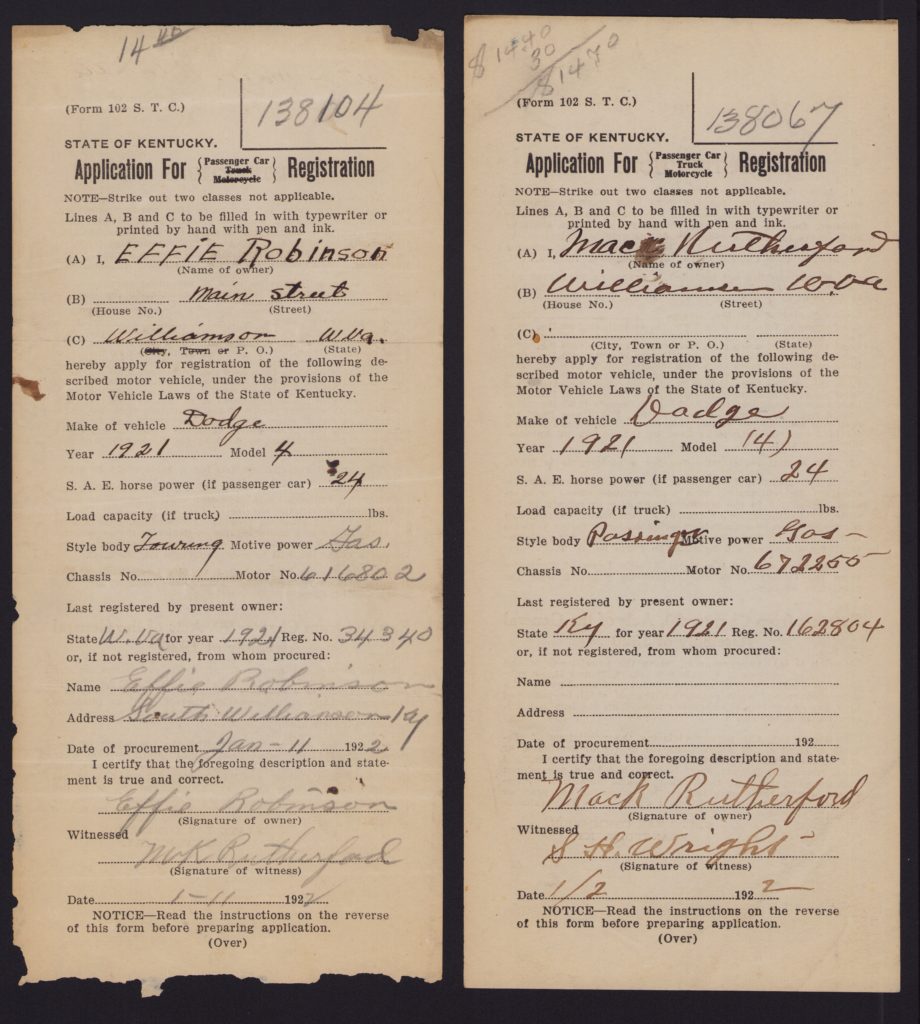 14 40
(Form 102 S. T. C.)
138104
STATE OF KENTUCKY.
Application For { Passenger Car Truck Motorcycle } Registration
NOTE—Strike out two classes not applicable.
Lines A, B and C to be filled in with typewriter or
printed by hand with pen and ink.
(A) I, EFFIE Robinson
(Name of owner)
(B) Main street
(House No.) (Street)
(C) Williamson W.Va.
(City, Town or P. O.) (State)
hereby apply for registration of the following de-
scribed motor vehicle, under the provisions of the
Motor Vehicle Laws of the State of Kentucky.
Make of vehicle Dodge
Year 1921 Model 4
S. A. E. horse power (if passenger car) 24
Load capacity (if truck) lbs.
Style body Touring Motive power Gas.
Chassis No. Motor No. 616802
Last registered by present owner:
State W. Va for year 1921 Reg. No. 34340
or, if not registered, from whom procured:
Name Effie Robinson
Address South Williamson Ky
Date of procurement Jan-11 1922
I certify that the foregoing description and state-
ment is true and correct.
Effie Robinson
(Signature of owner)
Witnessed
M K Rutherford
(Signature of witness)
Date 1-11 1922
NOTICE—Read the instructions on the reverse
of this form before preparing application.
(Over)
$ 14.40
30
$ 14 70
(Form 102 S. T. C.)
138067
STATE OF KENTUCKY.
Application For { Passenger Car Truck Motorcycle } Registration
NOTE—Strike out two classes not applicable.
Lines A, B and C to be filled in with typewriter or
printed by hand with pen and ink.
(A) I, Mack Rutherford
(Name of owner)
(B) Williamson W.Va
(House No.) (Street)
(C)
(City, Town or P. O.) (State)
hereby apply for registration of the following de-
scribed motor vehicle, under the provisions of the
Motor Vehicle Laws of the State of Kentucky.
Make of vehicle Dadge
Year 1921 Model (4)
S. A. E. horse power (if passenger car) 24
Load capacity (if truck) lbs.
Style body Passinger Motive power Gas-
Chassis No. Motor No. 672255
Last registered by present owner:
State Ky for year 1921 Reg. No. 162804
or, if not registered, from whom procured:
Name
Address
Date of procurement 192
I certify that the foregoing description and state-
ment is true and correct.
Mack Rutherford
(Signature of owner)
Witnessed
S H. Wright
(Signature of witness)
Date 1/2 1922
NOTICE—Read the instructions on the reverse
of this form before preparing application.
(Over)